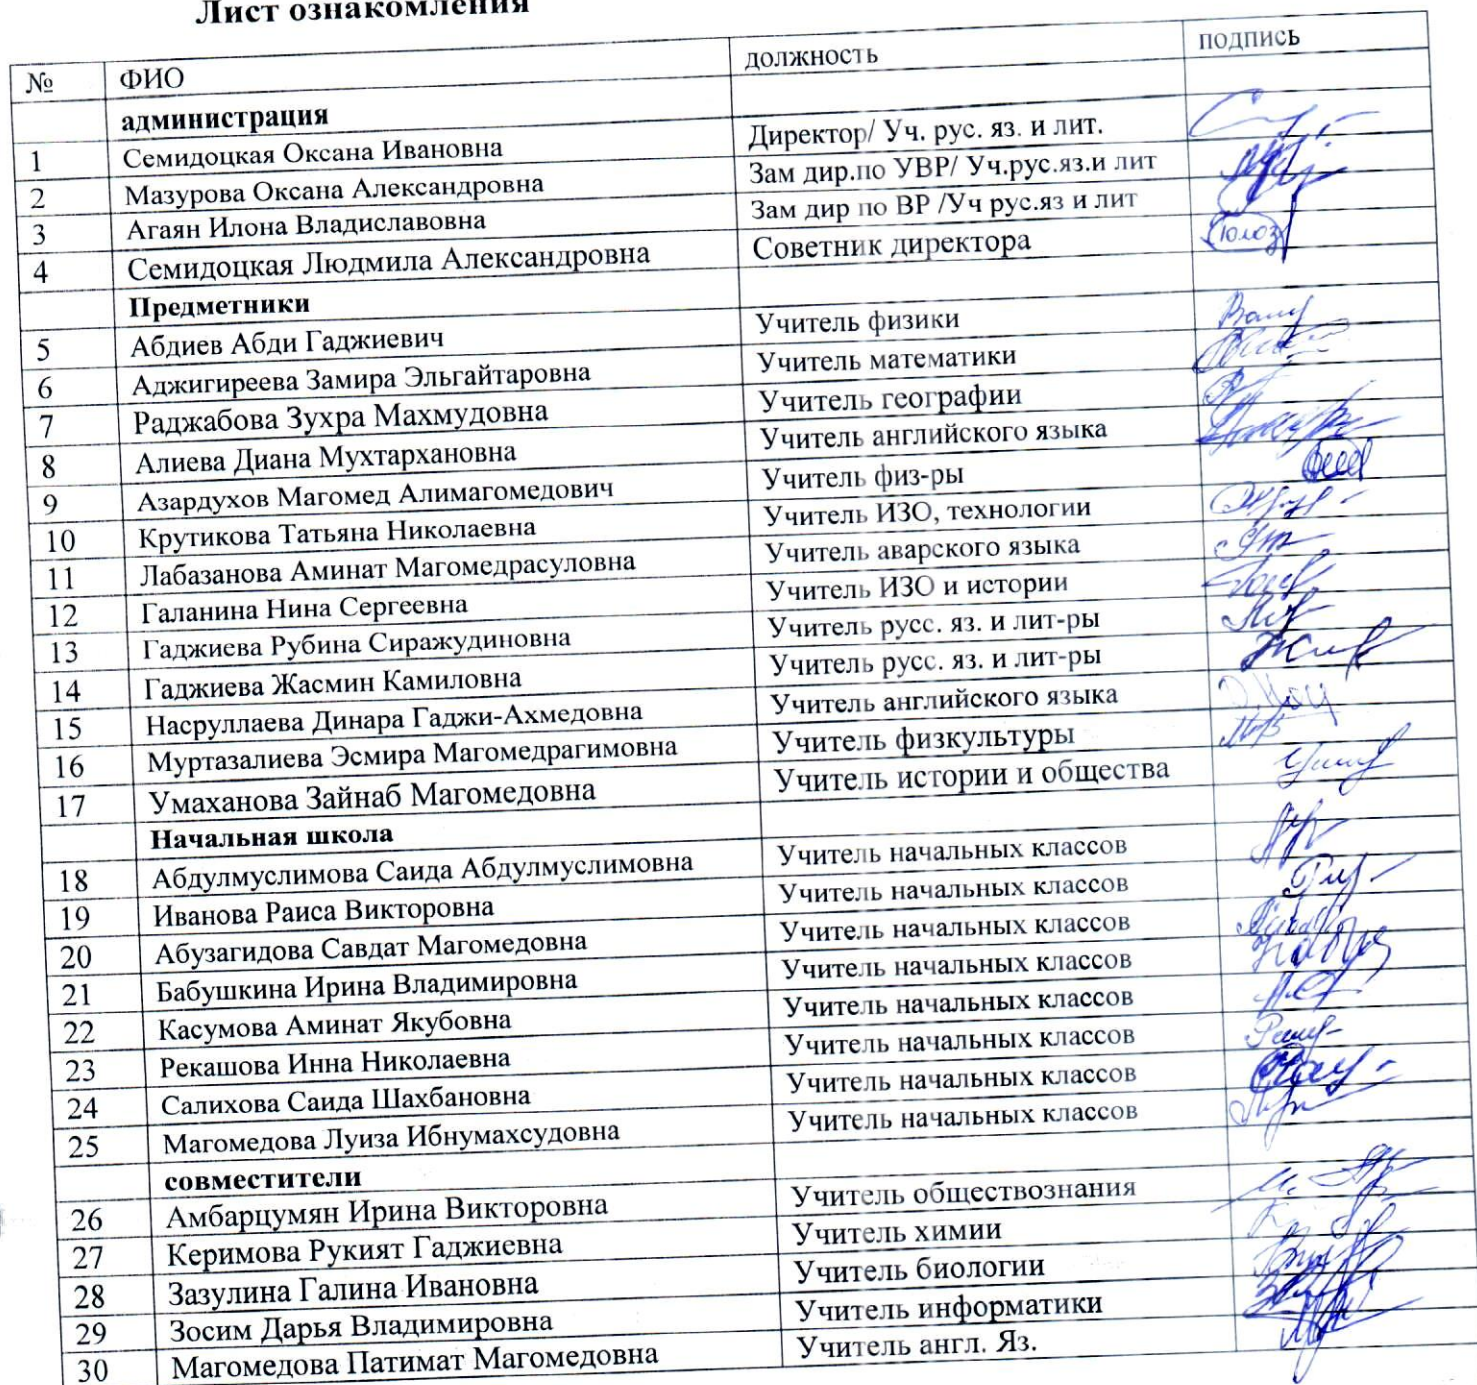 Лист ознакомления
№ ФИО должность подпись
администрация
1 Семидоцкая Оксана Ивановна Директор/ Уч. рус. яз. и лит.
2 Мазурова Оксана Александровна Зам дир.по УВР/ Уч.рус.яз.и лит
3 Агаян Илона Владиславовна Зам дир по ВР /Уч рус.яз и лит
4 Семидоцкая Людмила Александровна Советник директора
Предметники
5 Абдиев Абди Гаджиевич Учитель физики
6 Аджигиреева Замира Эльгайтаровна Учитель математики
7 Раджабова Зухра Махмудовна Учитель географии
8 Алиева Диана Мухтархановна Учитель английского языка
9 Азардухов Магомед Алимагомедович Учитель физ-ры
10 Крутикова Татьяна Николаевна Учитель ИЗО, технологии
11 Лабазанова Аминат Магомедрасуловна Учитель аварского языка
12 Галанина Нина Сергеевна Учитель ИЗО и истории
13 Гаджиева Рубина Сиражудиновна Учитель русс. яз. и лит-ры
14 Гаджиева Жасмин Камиловна Учитель русс. яз. и лит-ры
15 Насруллаева Динара Гаджи-Ахмедовна Учитель английского языка
16 Муртазалиева Эсмира Магомедрагимовна Учитель физкультуры
17 Умаханова Зайнаб Магомедовна Учитель истории и общества
Начальная школа
18 Абдулмуслимова Саида Абдулмуслимовна Учитель начальных классов
19 Иванова Раиса Викторовна Учитель начальных классов
20 Абузагидова Савдат Магомедовна Учитель начальных классов
21 Бабушкина Ирина Владимировна Учитель начальных классов
22 Касумова Аминат Якубовна Учитель начальных классов
23 Рекашова Инна Николаевна Учитель начальных классов
24 Салихова Саида Шахбановна Учитель начальных классов
25 Магомедова Луиза Ибнумахсудовна Учитель начальных классов
совместители
26 Амбарцумян Ирина Викторовна Учитель обществознания
27 Керимова Рукият Гаджиевна Учитель химии
28 Зазулина Галина Ивановна Учитель биологии
29 Зосим Дарья Владимировна Учитель информатики
30 Магомедова Патимат Магомедовна Учитель англ. Яз.